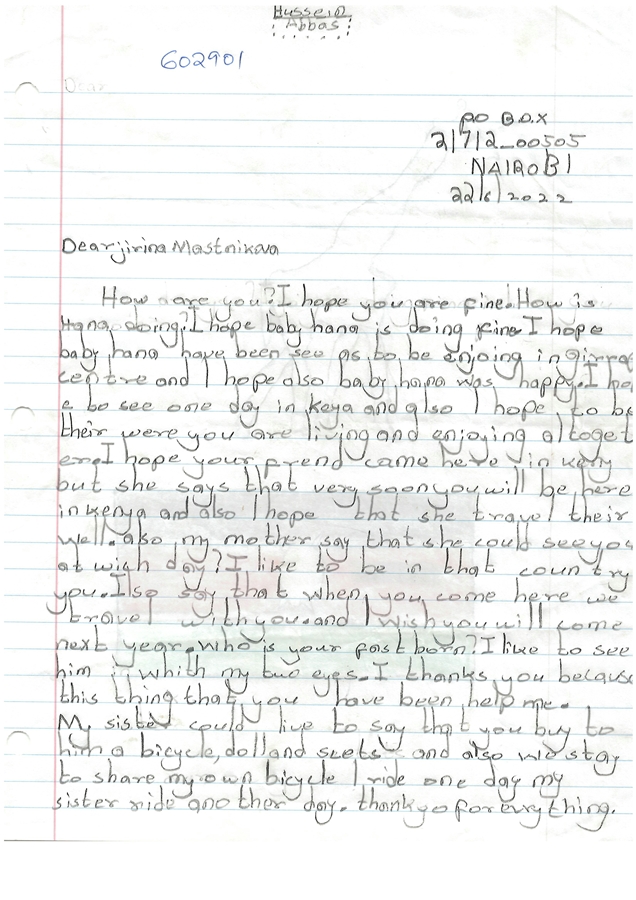 Hussein
Abbas
602901
Dear
PO BOX
21712_00505
NAIROBI
22/6/2022
Dearjirina Mastnikova
How are you?I hope you are fine.How is
Hana doing?I hope baby hana is doing fine I hope
baby hana have been see as to be enjoing in girra
centre and I hope also baby hana was happy.I ho
e to see one day in keya and also I hope to be
their were you are living and enjoying altoget
er.I hope your frend came here in keny
but she says that very soon you will be here
in kenya and also I hope that she travel their
well.also my mother say that she could see you
at wich day?I like to be in that country
you.Also say that when you come here we
travel with you.and I wish you will come
next year.who is your fast born?I like to see
him which my two eyes.I thanks you because
this thing that you have been help me.
My sister could live to say that you buy to
him a bicycle,doll and seets and also we stay
to share my own bicycle I ride one day my
sister ride ano ther day.thankyo forevrything.